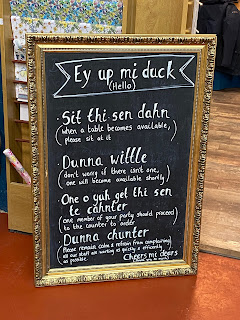 Ey up mi duck
(Hello)
· Sit thi sen dahn
(when a table becomes available,
please sit at it)
· Dunna wittle
(don't worry if there isn't one,
one will become available shortly)
· One o yuh get thi sen
te cahnter
(one member of your party should proceed
to the counter to order)
· Dunna chunter
(Please remain calm & refrain from complaining,
all our staff are working as quickly & efficiently
as possible)
Cheers mi dears